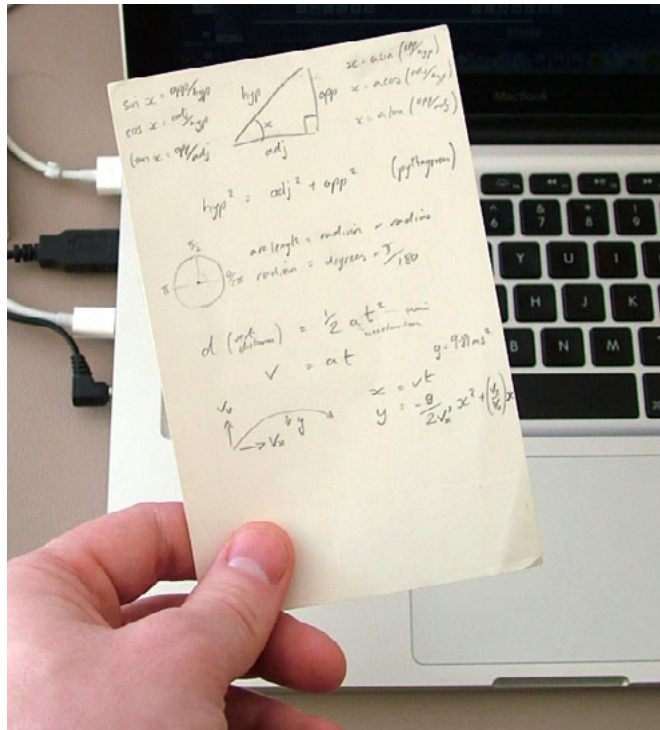 sin x = opp/hyp
cos x = adj/hyp
tan x = opp/adj
hyp
opp
x
adj
x = asin (opp/hyp)
x = acos (adj/hyp)
x = atan (opp/adj)
hyp² = adj² + opp² (pythagoras)
π/2
π
0/2π
arc length = radian × radius
radian = degrees × π/180
d (vert distance) = 1/2 a t²
v = at
g = 9.81 ms²
Vy
Vx
g
x = vt
y = -g/2Vx² x² + (Vy/Vx) x
MacBook
^ 6
& 7
* 8
( 9
Y U I
H J K
B N M